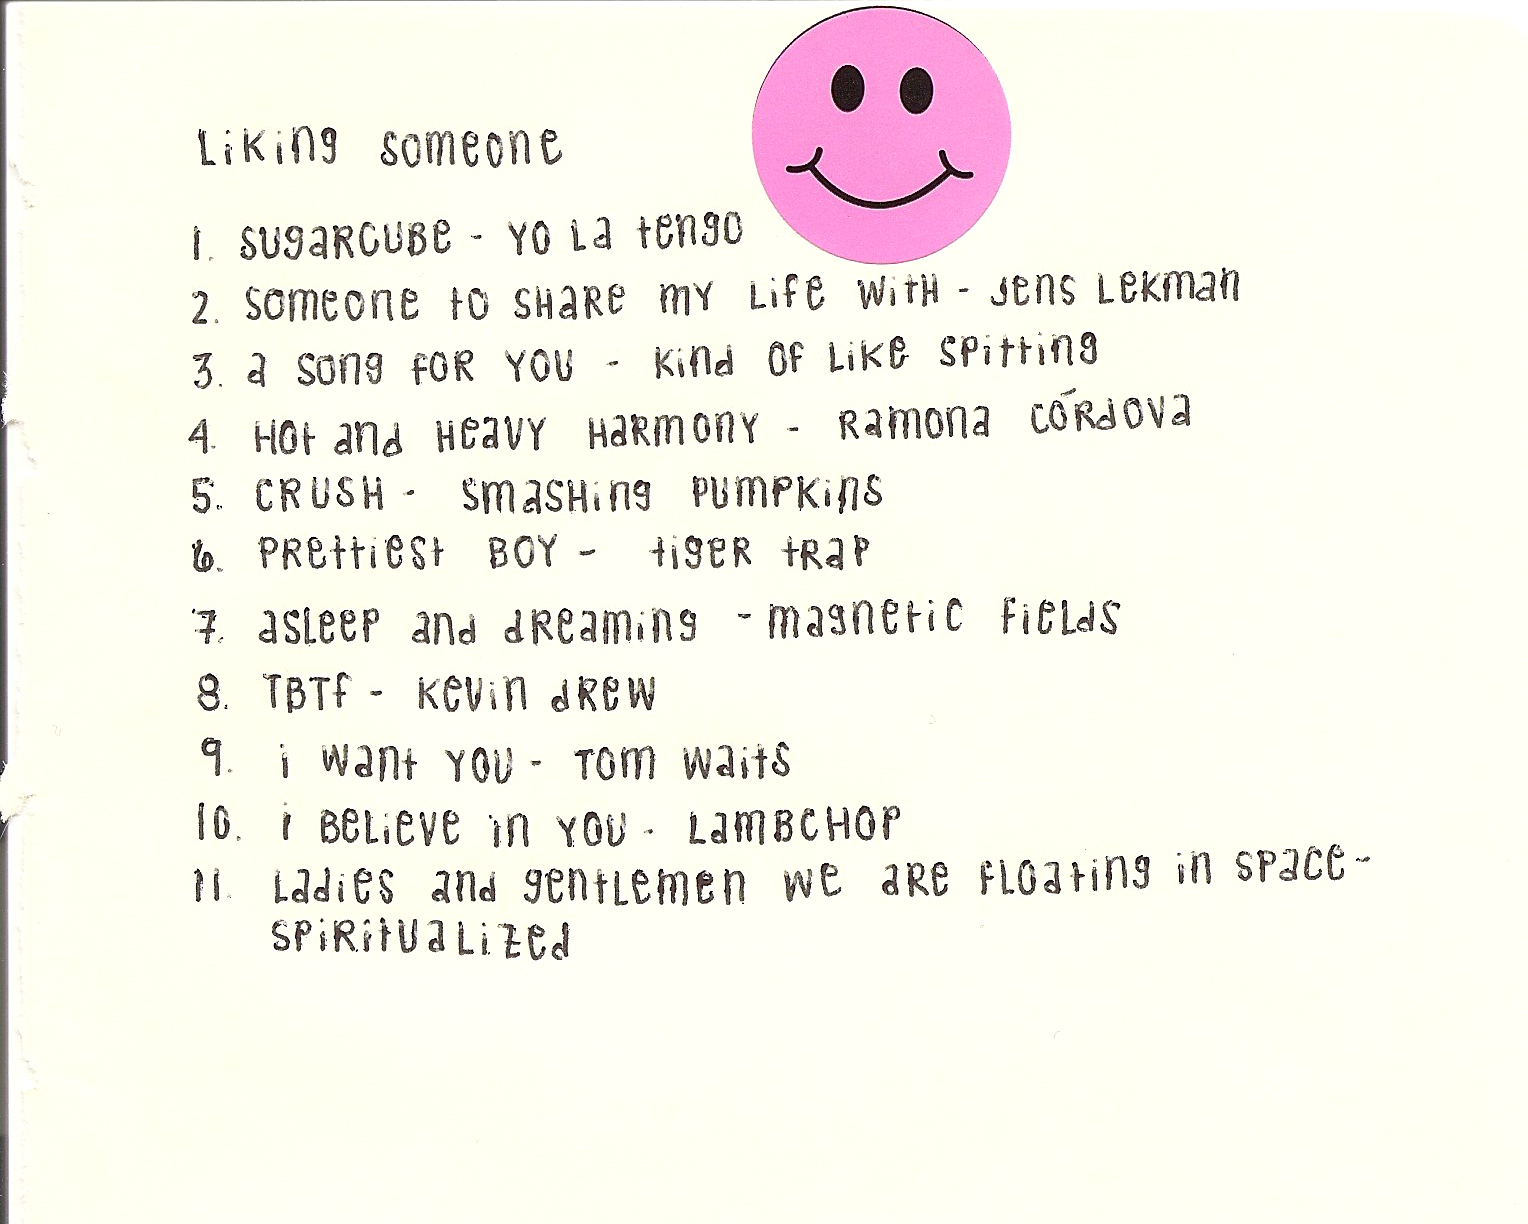 Liking someone
1. SUGARCUBE - YO La tengo
2. Someone to SHARE MY Life WitH - Jens Lekman
3. a song FOR YOU - Kind OF Like Spitting
4. Hot and Heavy Harmony - Ramona Córdova
5. CRUSH - Smashing Pumpkins
6. Prettiest BOY - tiger trap
7. asleep and dreaming - magnetic fields
8. TBTF - Kevin drew
9. i want YOU - Tom Waits
10. i Believe in YOU - LamBCHOP
11. Ladies and gentlemen we are floating in space -
Spiritualized